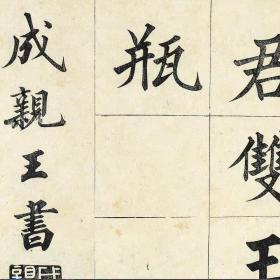 君雙玉
瓶
成親王書